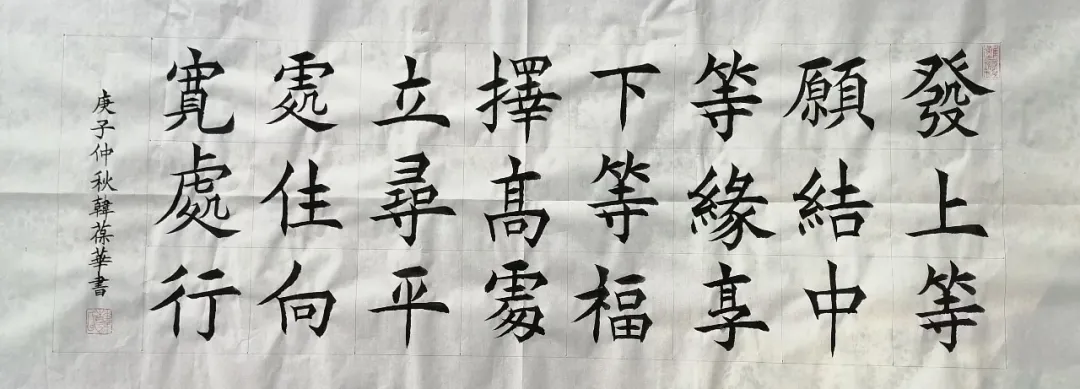 發上等
願結中
等緣享
下等福
擇高處
立尋平
處住向
寬處行
庚子仲秋韓葆華書